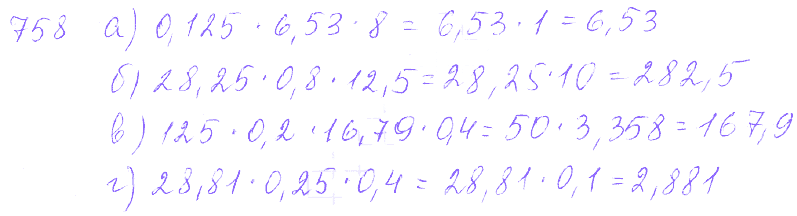 758 а) 0,125 · 6,53 · 8 = 6,53 · 1 = 6,53
б) 28,25 · 0,8 · 12,5 = 28,25 · 10 = 282,5
в) 125 · 0,2 · 16,79 · 0,4 = 50 · 3,358 = 167,9
г) 28,81 · 0,25 · 0,4 = 28,81 · 0,1 = 2,881